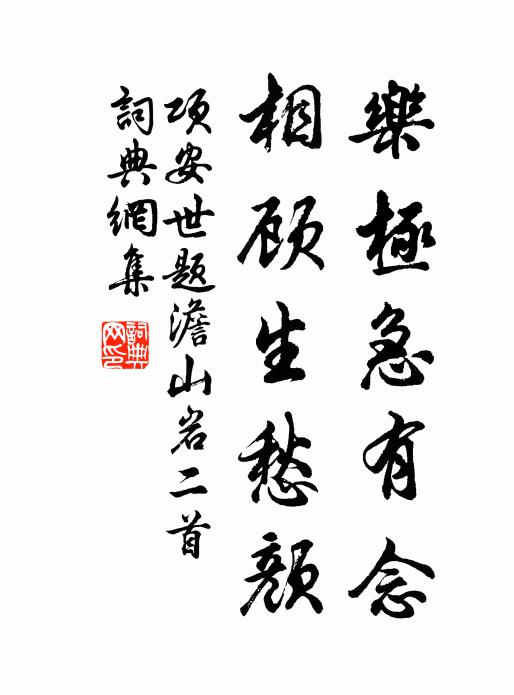 樂極急有念
相顾生愁顏
项安世题澹山岩二首
詞典網集
詞典网印